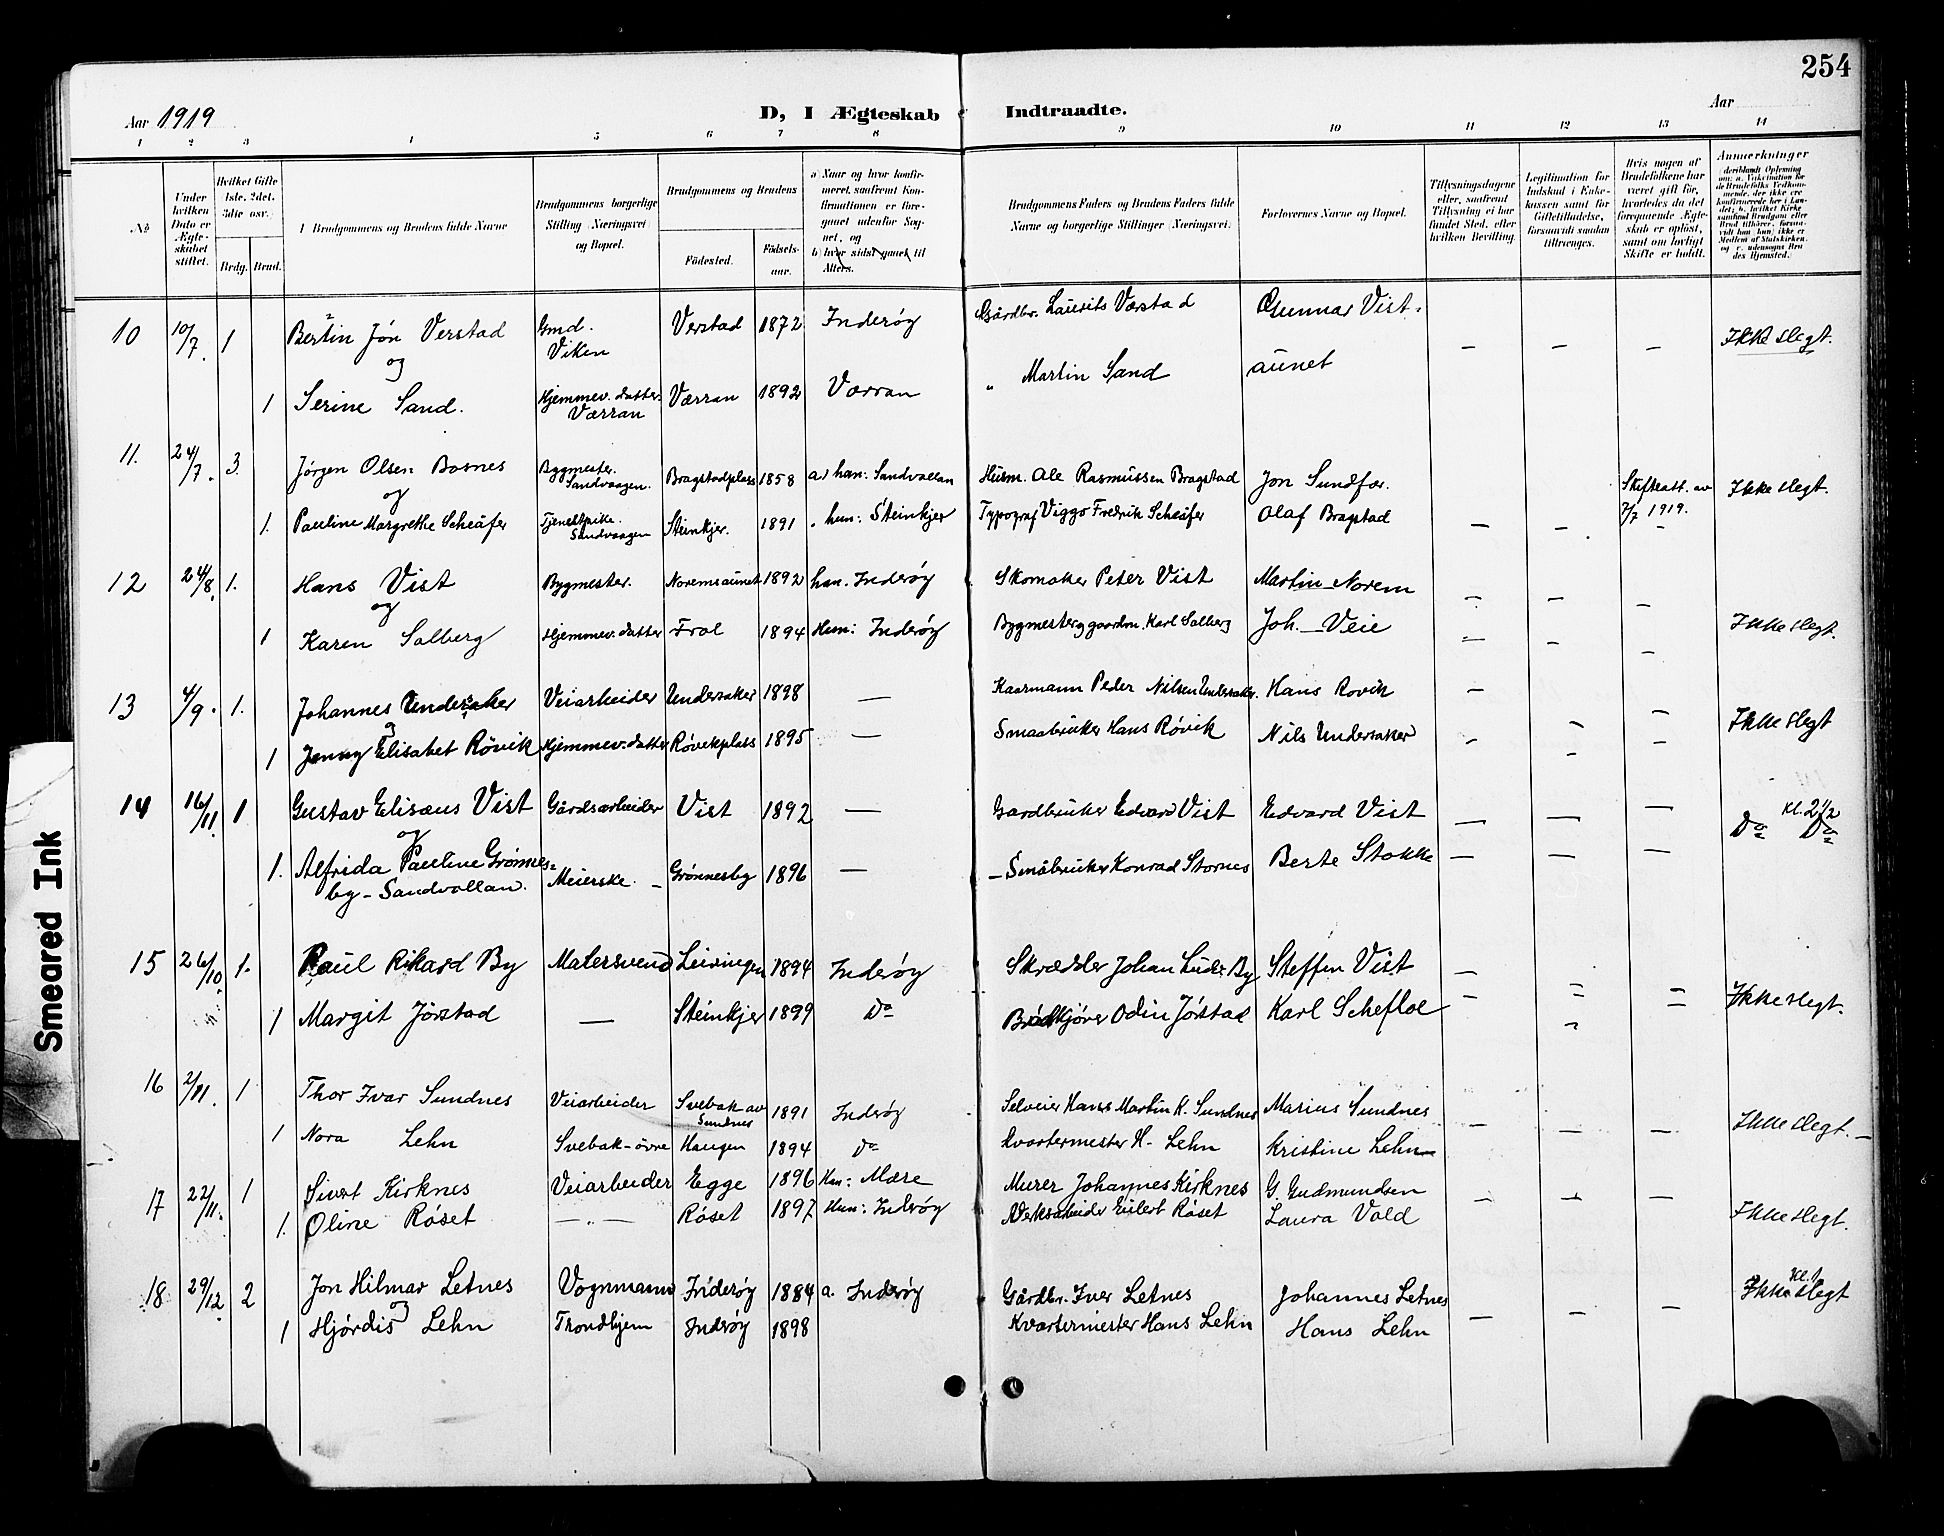 254
Aar 1919
D, I Ægteskab Indtraadte.
Aar
1 2 3 4 5 6 7 8 9 10 11 12 13 14
No
Under hvilken Dato er Ægteskabet stiftet.
Hvilket Gifte 1ste, 2det, 3die osv.
Brdg. Brud.
Brudgommens og Brudens fulde Navne
Brudgommens borgerlige Stilling (Næringsvei) og Bopæl.
Brudgommens og Brudens
Födested.
Födselsaar.
a) Naar og hvor konfirmeret, saafremt Konfirmationen er foregaaet udenfor Sognet, og
b) hvor sidst gaaet til Alters.
Brudgommens Faders og Brudens Faders fulde Navne og borgerlige Stillinger (Næringsvei).
Forlovernes Navne og Bopæl.
Tillysningsdagene eller, saafremt Tillysning ei har fundet Sted, efter hvilken Bevilling.
Legitimation for Indskud i Enkekassen samt for Giftetilladelse, forsaavidt saadan tiltrænges.
Hvis nogen af Brudefolkene har været gift før, hvorledes da det foregaaende Ægteskab er opløst, samt om lovligt Skifte er holdt.
Anmærkninger
10 10/7. 1 Bertin Jón Verstad Gmd. Viken Verstad 1872 Inderöy Gårdbr. Laurits Værstad Gunnar Vist- — — — Ikke slegt.
og
1 Serine Sand. Hjemmev. datter. Værran Værran 1892 Værran " Martin Sand aunet
11. 24/7. 3. Jörgen Olsen Bosnes Bygmester. Sandvaagen. Bragstadplass 1858 a. han: Sandvollan Husm. Ole Rasmussen Bragstad Jon Sundfar. Skifteatt. av Ikke slegt.
og
1. Pauline Margrethe Scheäfer Tjenestpike. Sandvaagen Steinkjer. 1891 " hun: Steinkjer Typograf Viggo Fredrik Scheäfer Olaf Bragstad — — 7/7 1919.
12 24/8. 1. Hans Vist Bygmester. Noremsaunet 1892 han. Inderöy Skomaker Peter Vist Martin Norem — — —
og
1 Karen Salberg Hjemmev. datter Frol 1894 Hun: Inderöy Bygmester og gaardbr. Karl Salberg Joh. Veie — — — Ikke slegt.
13 4/9. 1. Johannes Undersaker Veiarbeider Undersaker 1898 — Kaarmann Peder Nilsen Undersaker. Hans Rovik — — —
og
1 Jenny Elisabet Rövik Hjemmev. datter Røvikplass 1895 — Smaabruker Hans Røvik Nils Undersaker — — — Ikke slegt
14 16/11. 1 Gustav Elisæus Vist Gårdsarbeider Vist 1892 — Gardbruker Edvard Vist Edvard Vist — — — Kl. 2 1/2
og
1. Alfrida Pauline Grønnes= Meierske. — Grønnesby 1896 — Småbruker Konrad Stornes Berte Stokke — — — Do Do
by - Sandvollan.
15 26/10. 1. Paul Rikard By Malersvend Leiringen 1894 Inderöy Skrædder Johan Luder By Steffen Vist — — —
1 Margit Jörstad — Steinkjer 1899 Do Brödkjörer Odin Jörstad Karl Schefloe — — — Ikke slegt.
16 2/11. 1 Thor Ivar Sundnes Veiarbeider Svebak av Sundnes 1891 Inderöy Selveier Hans Martin K. Sundnes Marius Sundnes
1 Nora Lehn Svebak-övre Haugen 1894 Do Kvartermester H. Lehn Kristine Lehn — — — Ikke slegt.
17 22/11. 1 Sivert Kirknes Veiarbeider Egge 1896 Han: Mære Murer Johannes Kirknes G. Gudmundsen — — —
1. Oline Röset — " — Röset 1897 Hun: Inderöy Verksarbeider Eilert Röset Laura Vold Ikke slegt.
18 29/12. 2 Jon Hilmar Letnes Vognmann Inderöy 1884 a. Inderöy Gårdbr. Iver Letnes Johannes Letnes Kl. 1 Ikke slegt
og
1 Hjördis Lehn Trondhjem Inderöy 1898 Kvartermester Hans Lehn Hans Lehn — — —
Smeared Ink